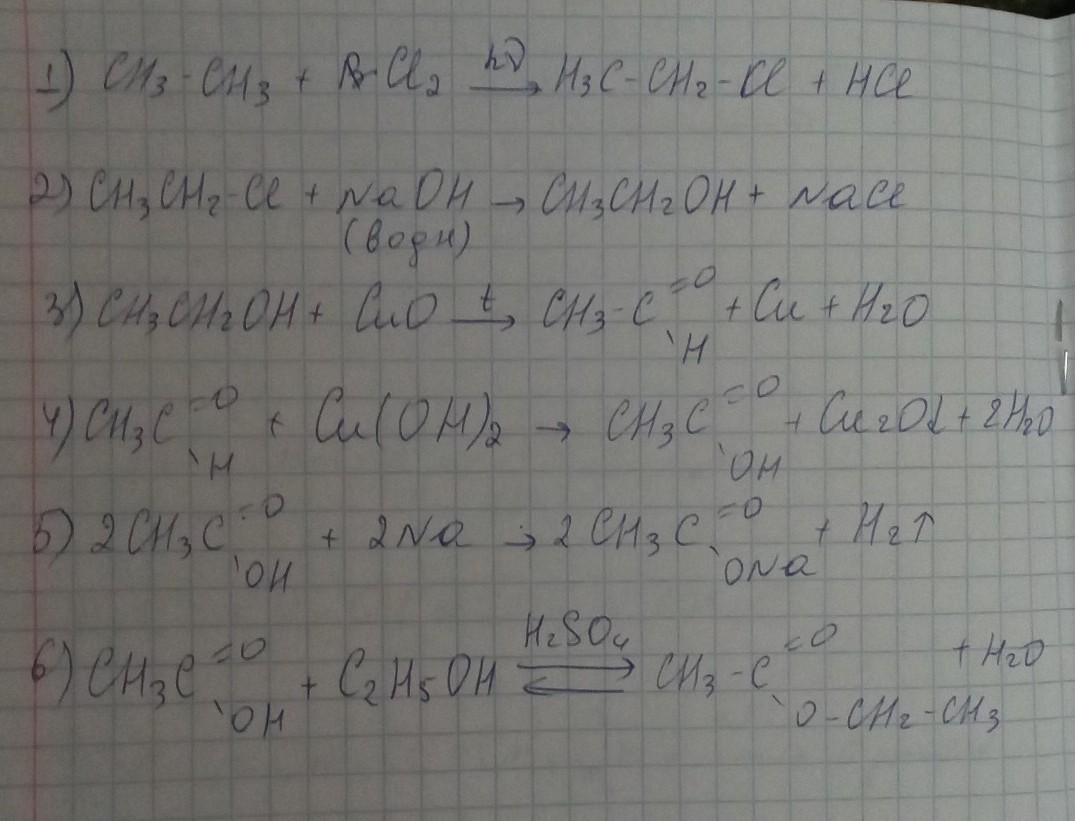 1) CH3-CH3 + Cl2 hν → H3C-CH2-Cl + HCl
2) CH3CH2-Cl + NaOH → CH3CH2OH + NaCl
(водн)
3) CH3CH2OH + CuO t → CH3-C =O \H + Cu + H2O
4) CH3C =O \H + Cu(OH)2 → CH3C =O \OH + Cu2O↓ + 2H2O
5) 2CH3C =O \OH + 2Na → 2CH3C =O \ONa + H2↑
6) CH3C =O \OH + C2H5OH H2SO4 ⇄ CH3-C =O \O-CH2-CH3 + H2O